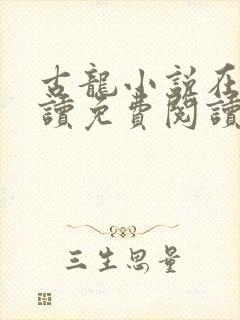 古龍小說在
讀免費閱讀
三生思量